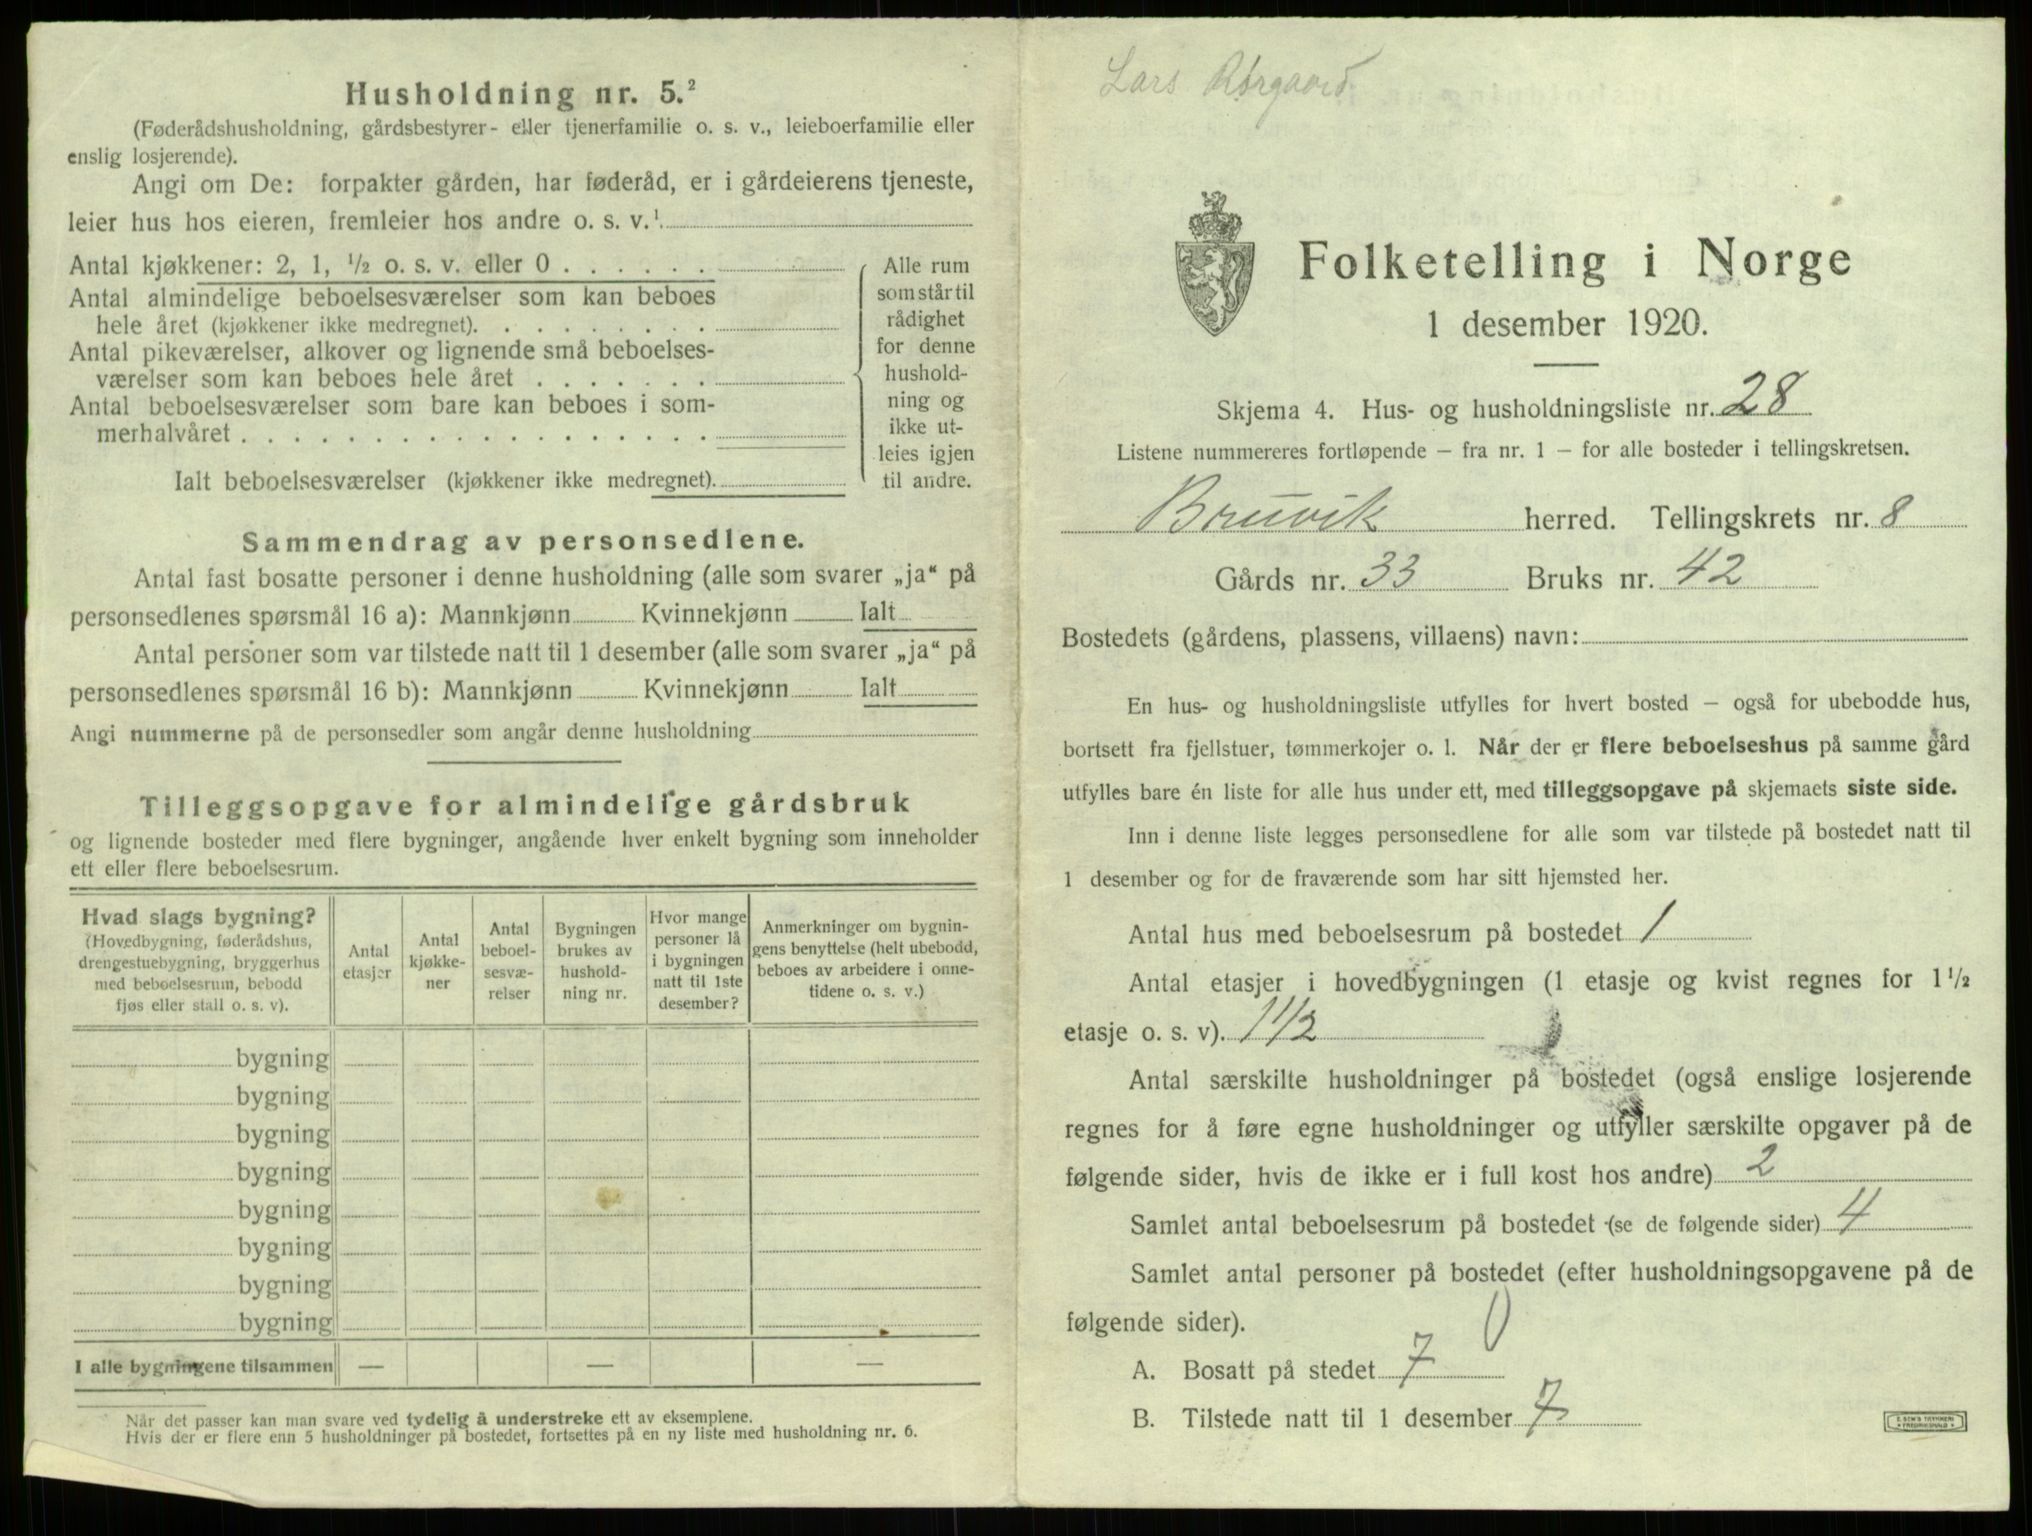 Husholdning nr. 5.²
(Føderådshusholdning, gårdsbestyrer- eller tjenerfamilie o. s. v., leieboerfamilie eller
enslig losjerende).
Angi om De: forpakter gården, har føderåd, er i gårdeierens tjeneste,
leier hus hos eieren, fremleier hos andre o. s. v.¹
Antal kjøkkener: 2, 1, ½ o. s. v. eller 0 . . . . . .
Antal almindelige beboelsesværelser som kan beboes
hele året (kjøkkener ikke medregnet). . . . . . . . .
Antal pikeværelser, alkover og lignende små beboelses-
værelser som kan beboes hele året . . . . . . .
Antal beboelsesværelser som bare kan beboes i som-
merhalvåret . . . . . . . . . . . . . . . . . .
Ialt beboelsesværelser (kjøkkener ikke medregnet).
Alle rum
som står til
rådighet
for denne
hushold-
ning og
ikke ut-
leies igjen
til andre.
Sammendrag av personsedlene.
Antal fast bosatte personer i denne husholdning (alle som svarer „ja“ på
personsedlenes spørsmål 16 a): Mannkjønn Kvinnekjønn Ialt
Antal personer som var tilstede natt til 1 desember (alle som svarer „ja“ på
personsedlenes spørsmål 16 b): Mannkjønn Kvinnekjønn Ialt
Angi nummerne på de personsedler som angår denne husholdning
Tilleggsopgave for almindelige gårdsbruk
og lignende bosteder med flere bygninger, angående hver enkelt bygning som inneholder
ett eller flere beboelsesrum.
Hvad slags bygning?
(Hovedbygning, føderådshus,
drengestuebygning, bryggerhus
med beboelsesrum, bebodd
fjøs eller stall o. s. v).
Antal
etasjer
Antal
kjøkke-
ner
Antal
beboel-
sesvæ-
relser
Bygningen
brukes av
hushold-
ning nr.
Hvor mange
personer lå
i bygningen
natt til 1ste
desember?
Anmerkninger om bygnin-
gens benyttelse (helt ubebodd,
beboes av arbeidere i onne-
tidene o. s. v.)
bygning
bygning
bygning
bygning
bygning
bygning
bygning
bygning
I alle bygningene tilsammen — — —
Når det passer kan man svare ved tydelig å understreke ett av eksemplene.
Hvis der er flere enn 5 husholdninger på bostedet, fortsettes på en ny liste med husholdning nr. 6.
Lars Rørgaard
Folketelling i Norge
1 desember 1920.
Skjema 4. Hus- og husholdningsliste nr. 28
Listene nummereres fortløpende – fra nr. 1 – for alle bosteder i tellingskretsen.
Bruvik herred. Tellingskrets nr. 8
Gårds nr. 33 Bruks nr. 42
Bostedets (gårdens, plassens, villaens) navn:
En hus- og husholdningsliste utfylles for hvert bosted – også for ubebodde hus,
bortsett fra fjellstuer, tømmerkojer o. l. Når der er flere beboelseshus på samme gård
utfylles bare én liste for alle hus under ett, med tilleggsopgave på skjemaets siste side.
Inn i denne liste legges personsedlene for alle som var tilstede på bostedet natt til
1 desember og for de fraværende som har sitt hjemsted her.
Antal hus med beboelsesrum på bostedet 1
Antal etasjer i hovedbygningen (1 etasje og kvist regnes for 1 ½
etasje o. s. v). 1 1/2
Antal særskilte husholdninger på bostedet (også enslige losjerende
regnes for å føre egne husholdninger og utfyller særskilte opgaver på de
følgende sider, hvis de ikke er i full kost hos andre) 2
Samlet antal beboelsesrum på bostedet (se de følgende sider) 4
Samlet antal personer på bostedet (efter husholdningsopgavene på de
følgende sider). 0
A. Bosatt på stedet 7
B. Tilstede natt til 1 desember 7
E. SEM'S TRYKKERI
FREDRIKSHALD